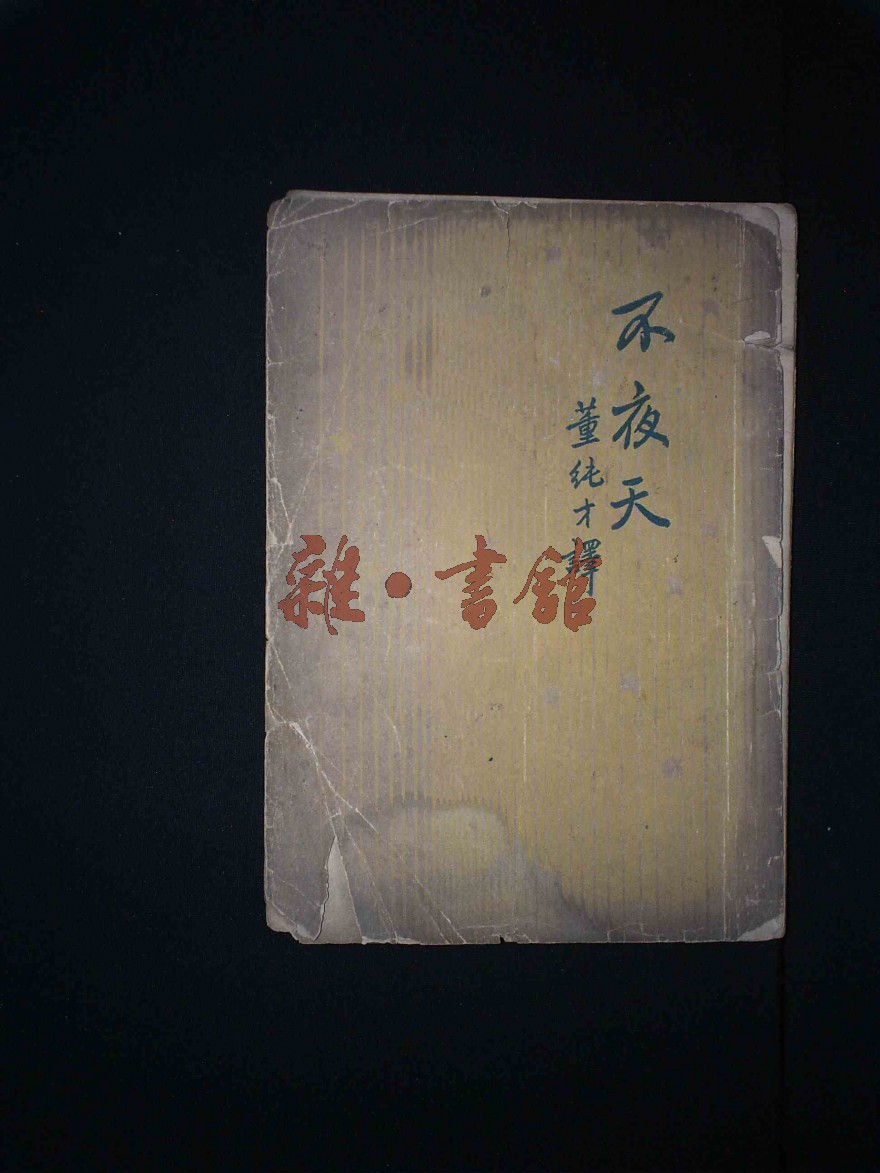 不夜天
董纯才譯
雜·書館